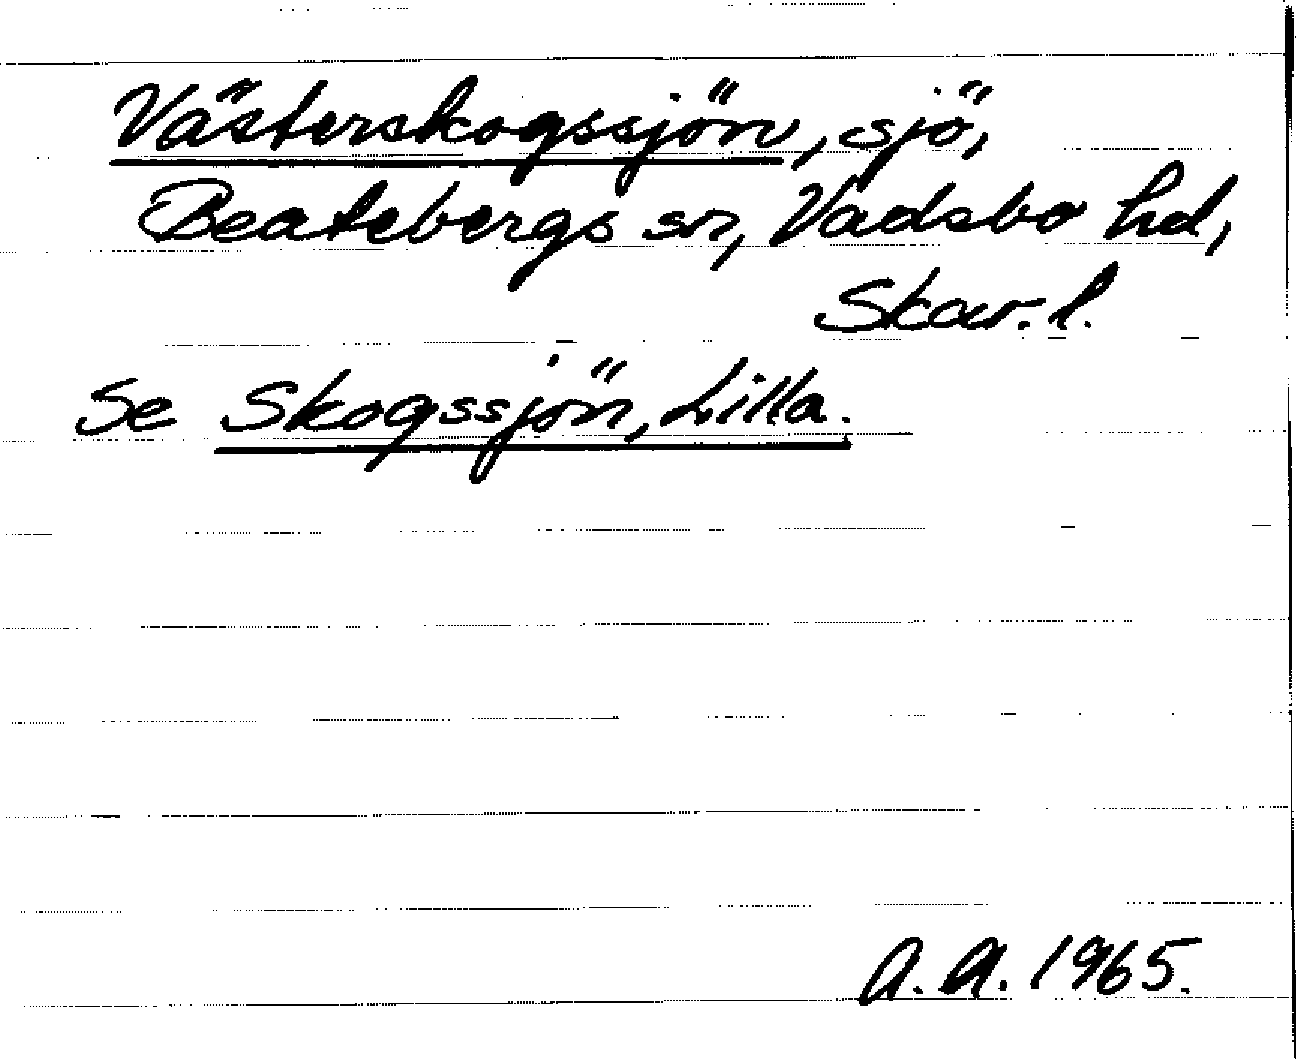 Västerskogssjön, sjö,
Beatebergs sn, Vadsbo hd,
Skar. l.
Se Skogssjön, Lilla.
A. A. 1965.